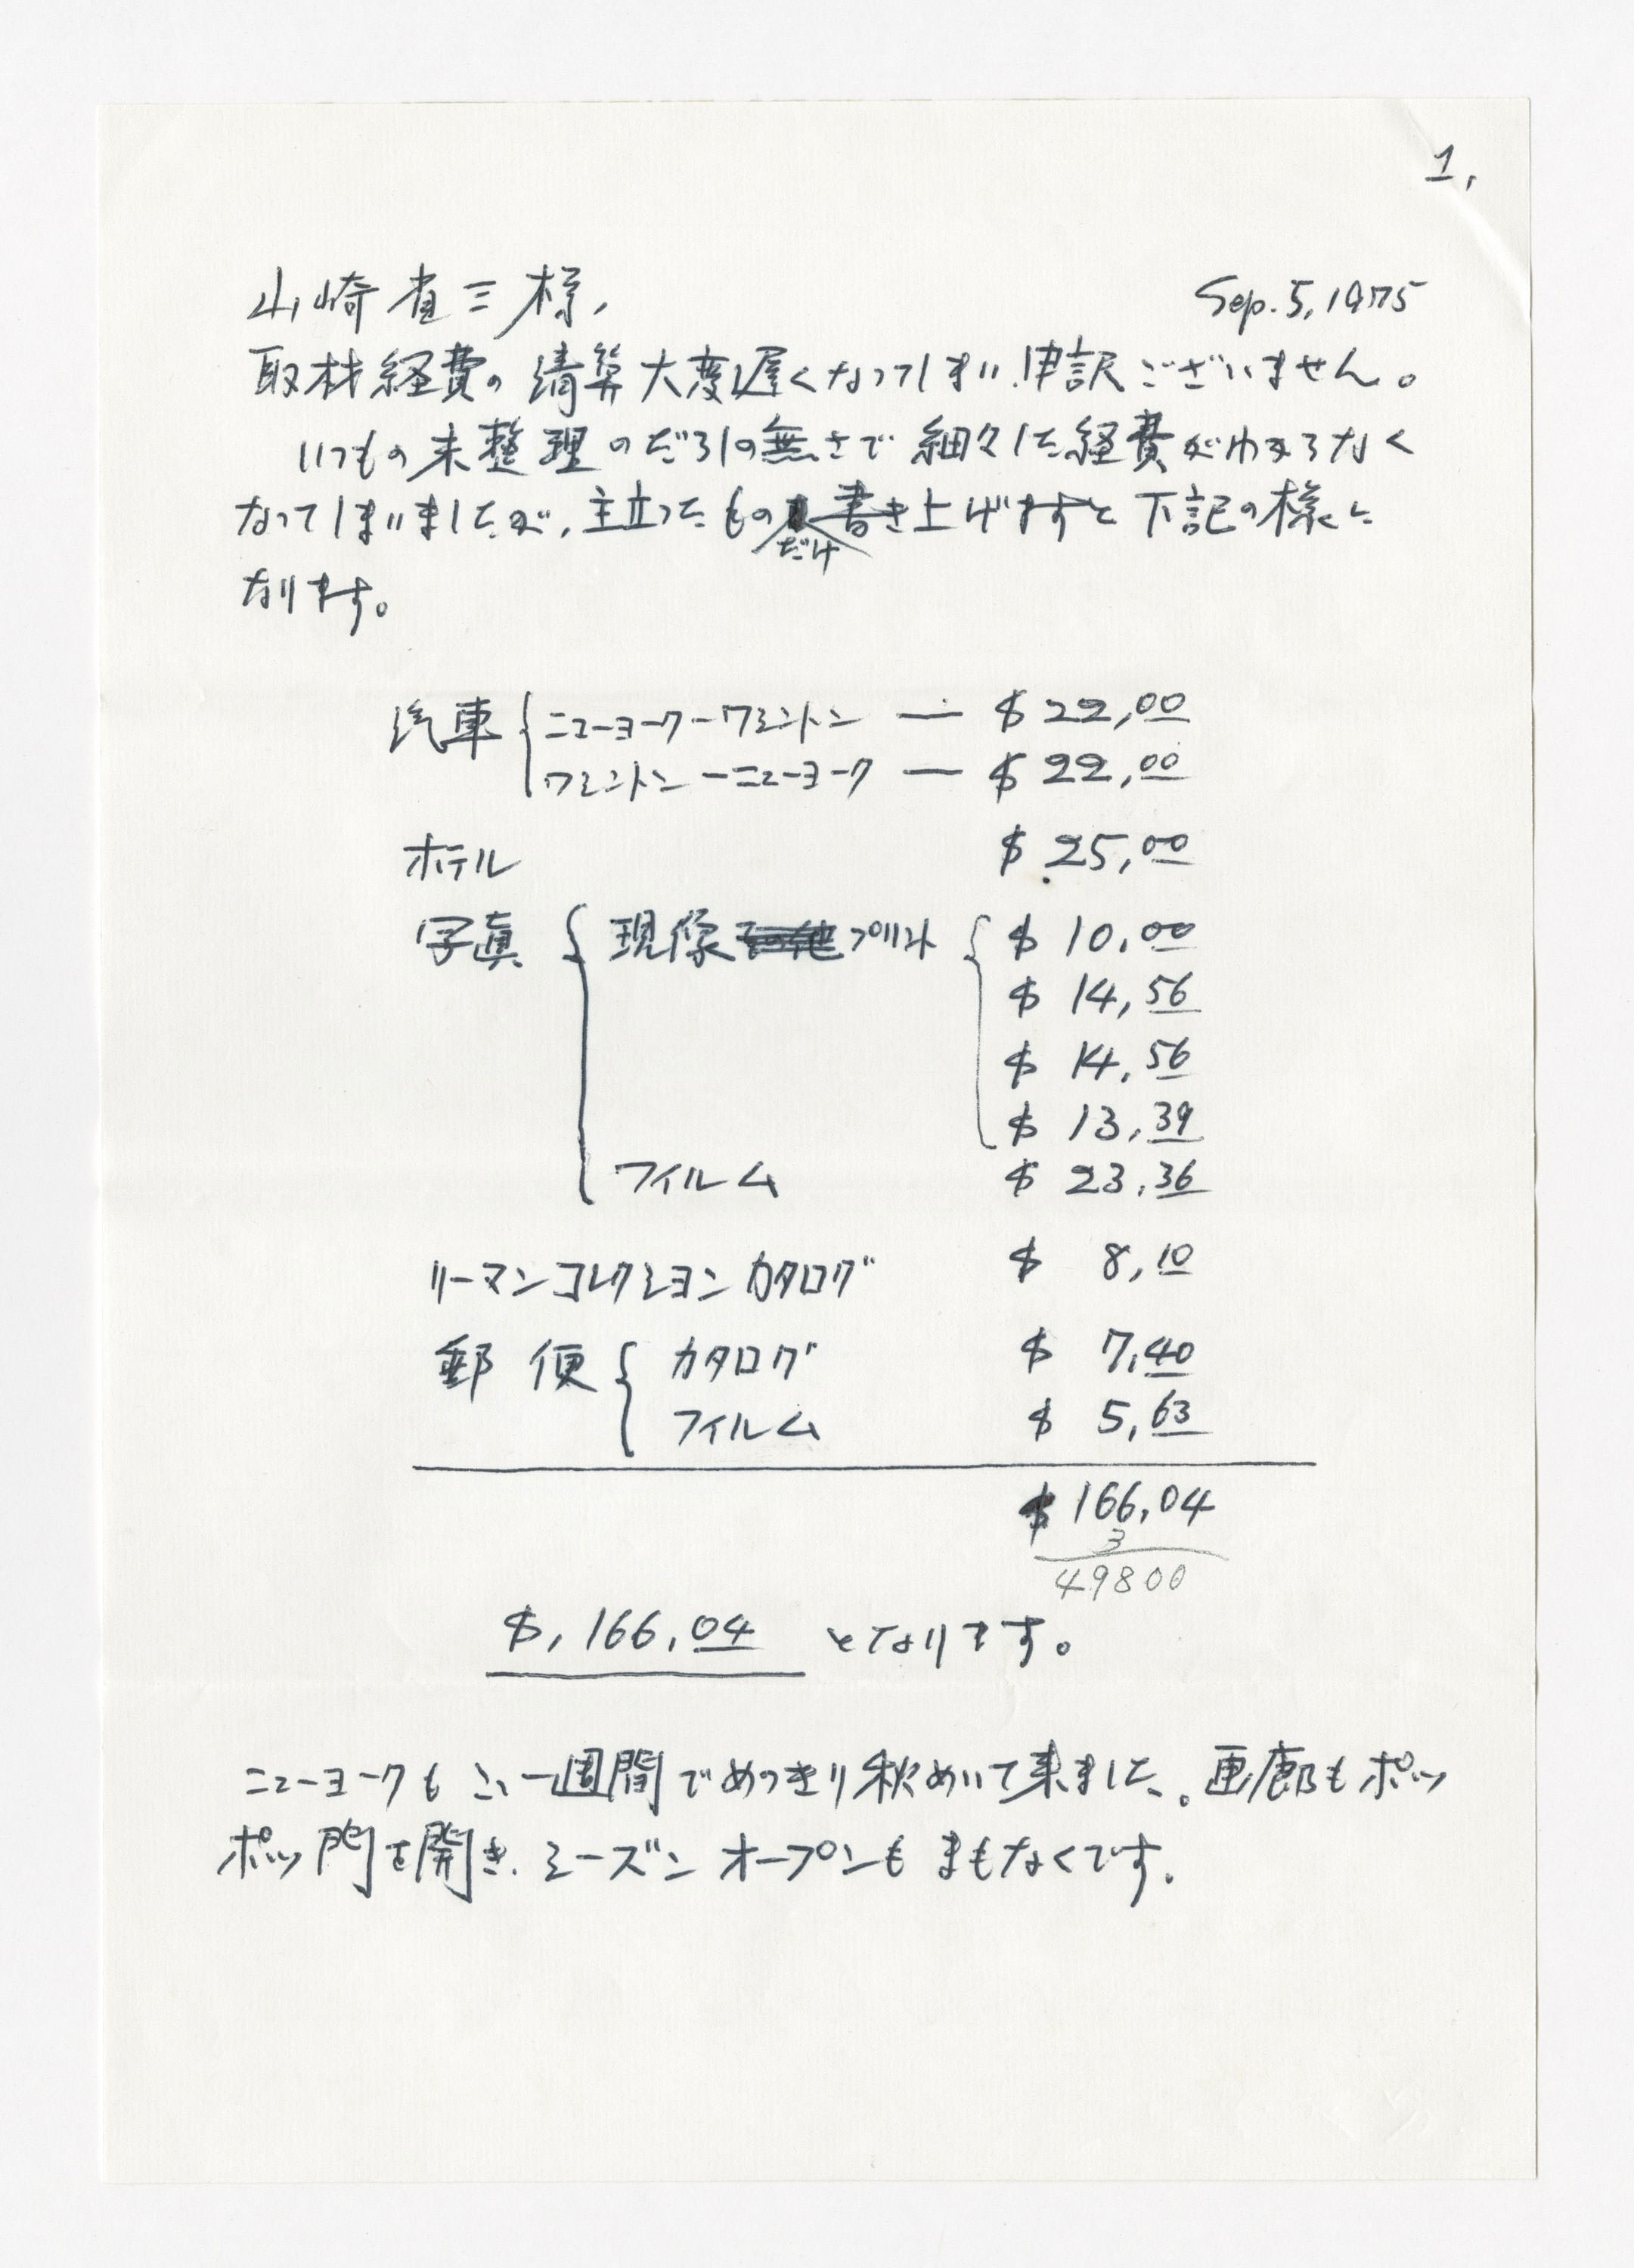 1,
山崎省三様, Sep. 5, 1975
取材経費の清算大変遅くなってしまい申訳ございません。
いつもの未整理のだらしの無さで細々した経費がわからなく
なってしまいましたが、主立ったもの書き上げますと下記の様に
だけ
なります。
汽車 { ニューヨークーワシントン — $ 22,00
ワシントンーニューヨーク — $ 22,00
ホテル $ 25,00
写真 { 現像 プリント { $ 10,00
$ 14,56
$ 14,56
$ 13,39
フィルム $ 23,36
リーマンコレクションカタログ $ 8,10
郵便 { カタログ $ 7,40
フィルム $ 5,63
$ 166,04
3
49800
$, 166,04 となります。
ニューヨークもここ一週間でめっきり秋めいて来ました。画廊もポツ
ポツ門を開き、シーズンオープンもまもなくです。